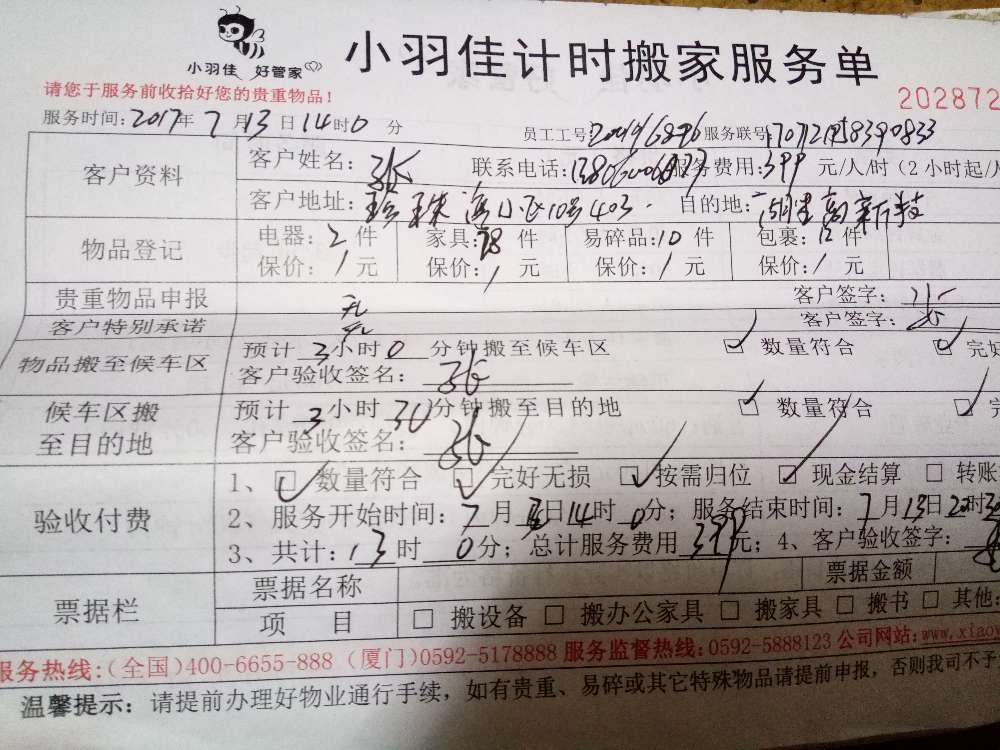 小羽佳 好管家
小羽佳计时搬家服务单
请您于服务前收拾好您的贵重物品!
202872
服务时间: 2017年 7 月 13 日 14时 0 分
员工工号: 服务联号:
客户资料
客户姓名: 张 联系电话: 服务费用: 399 元/人/时 (2小时起/
客户地址: 海 10号403. 目的地: 高新技
物品登记
电器: 2 件 家具: 件 易碎品: 10 件 包裹: 12 件
保价: 1 元 保价: 1 元 保价: 1 元 保价: 1 元
贵重物品申报 无 客户签字: 张
客户特别承诺 无 客户签字: 张
物品搬至候车区
预计 3 小时 0 分钟搬至候车区 ☑ 数量符合 ☑ 完好
客户验收签名: 张
候车区搬
至目的地
预计 3 小时 30 分钟搬至目的地 ☑ 数量符合 ☑
客户验收签名: 张
验收付费
1、☑ 数量符合 ☑ 完好无损 ☑ 按需归位 ☑ 现金结算 □ 转账
2、服务开始时间: 7 月 日 14 时 0 分; 服务结束时间: 7 月 13 日 时
3、共计: 13 时 0 分; 总计服务费用 399 元; 4、客户验收签字:
票据栏
票据名称 票据金额
项 目 □ 搬设备 □ 搬办公家具 □ 搬家具 □ 搬书 □ 其他:
服务热线:(全国)400-6655-888 (厦门)0592-5178888 服务监督热线:0592-5888123 公司网站:www.xiao
温馨提示: 请提前办理好物业通行手续,如有贵重、易碎或其它特殊物品请提前申报,否则我司不予